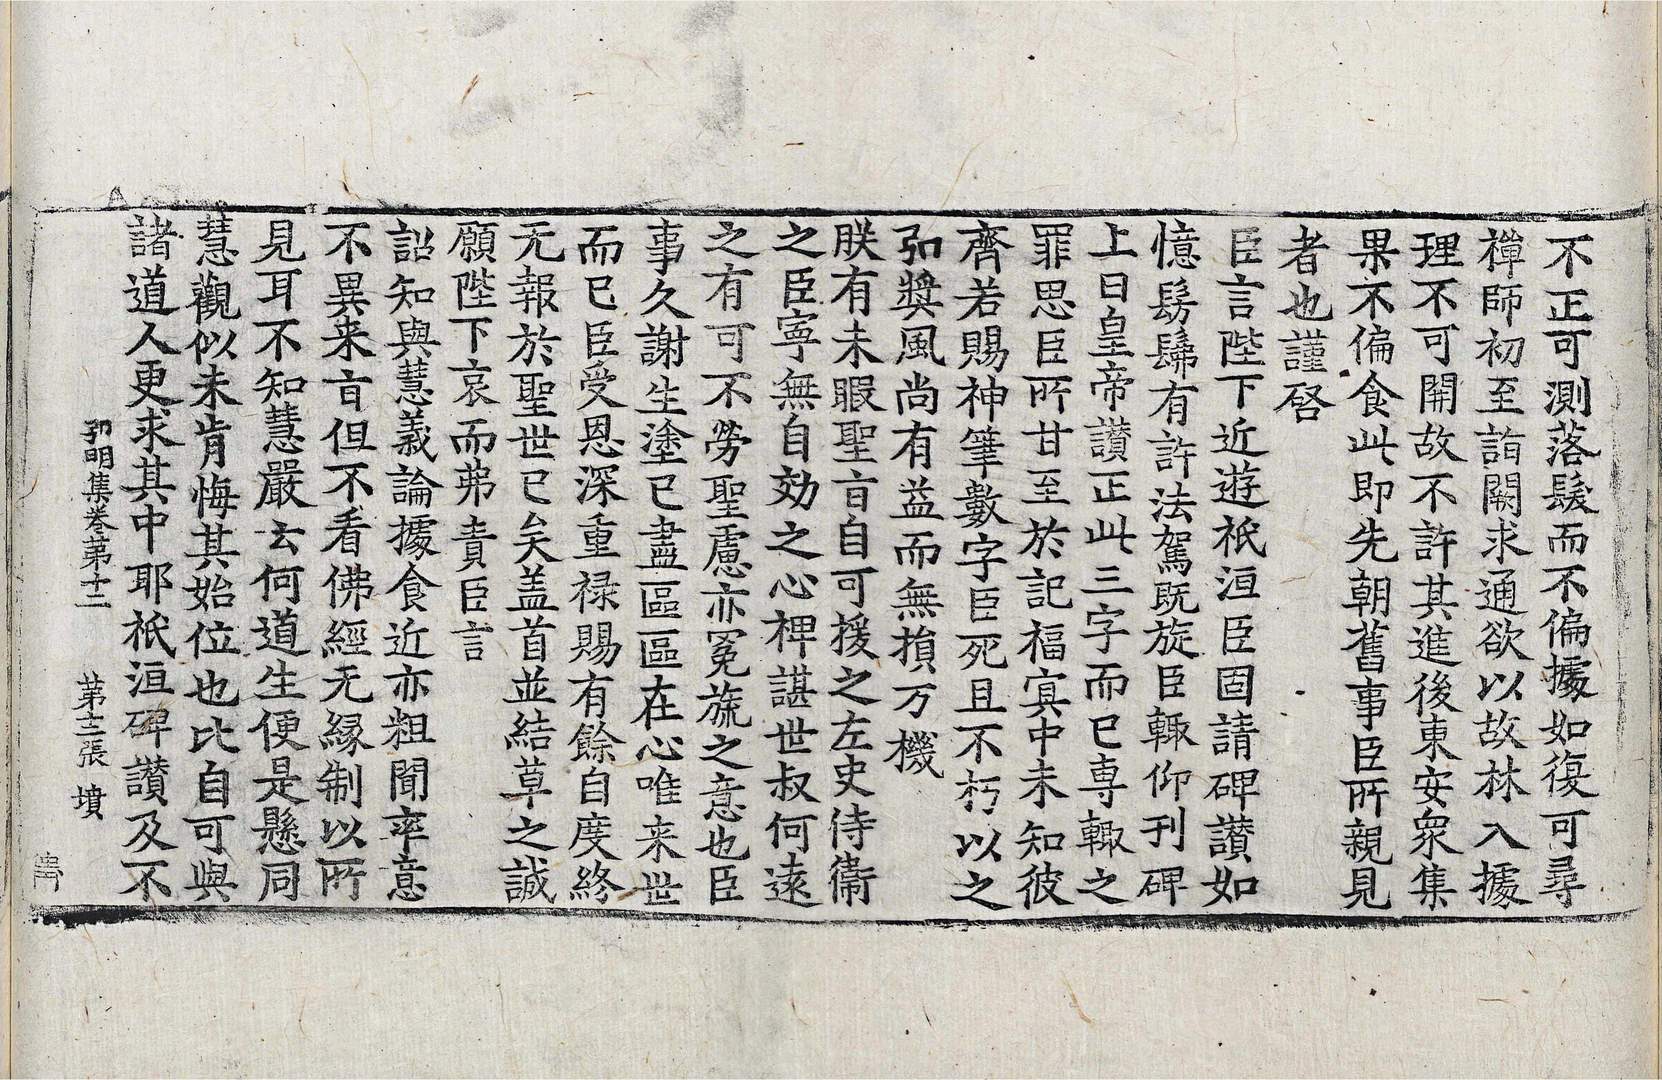 不正可測落髮而不偏據如復可尋
禪師初至詣闕求通欲以故林入據
理不可開故不許其進後東安衆集
果不偏食此即先朝舊事臣所親見
者也謹啓
臣言陛下近遊祇洹臣固請碑讃如
憶髣髴有許法駕既旋臣輙仰刊碑
上曰皇帝讃正此三字而已專輙之
罪思臣所甘至於記福㝠中未知彼
齊若賜神筆數字臣死且不朽以之
弘奬風尚有益而無損万機
朕有未暇聖旨自可援之左史侍衞
之臣寧無自効之心裨諶世叔何遠
之有可不勞聖慮亦冕旒之意也臣
事久謝生塗已盡區區在心唯来世
而已臣受恩深重禄賜有餘自度終
无報於聖世已矣盖首並結草之誠
願陛下哀而弗責臣言
詔知與慧義論據食近亦粗聞率意
不異来旨但不看佛經无縁制以所
見耳不知慧嚴云何道生便是懸同
慧觀似未肯悔其始位也比自可與
諸道人更求其中耶祇洹碑讃及不
弘明集卷第十二 第十二張 墳